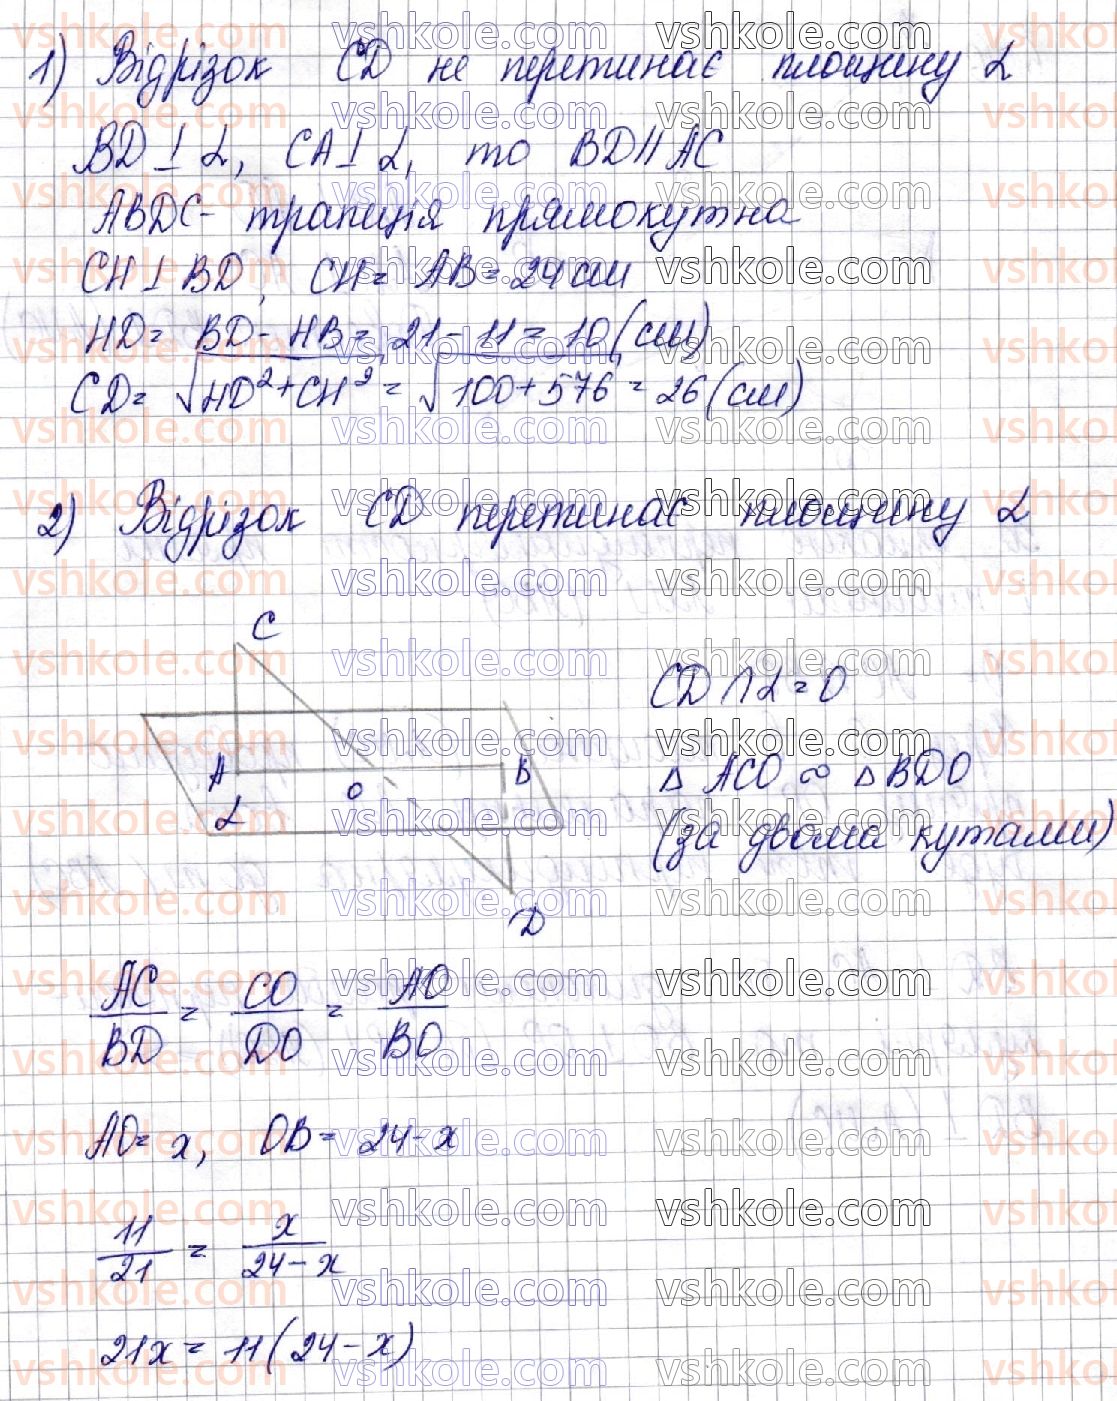 1) Відрізок CD не перетинає площину α
BD ⊥ α, CA ⊥ α, то BD || AC
ABDC - трапеція прямокутна
CH ⊥ BD, CH = AB = 24 см
HD = BD - HB = 21 - 11 = 10 (см)
CD = √HD² + CH² = √100 + 576 = 26 (см)
2) Відрізок CD перетинає площину α
C
A
O
B
α
D
CD ∩ α = O
△ ACO ∾ △ BDO
(за двома кутами)
AC/BD = CO/DO = AO/BO
AO = x, OB = 24 - x
11/21 = x/24 - x
21x = 11(24 - x)
vshkole.com